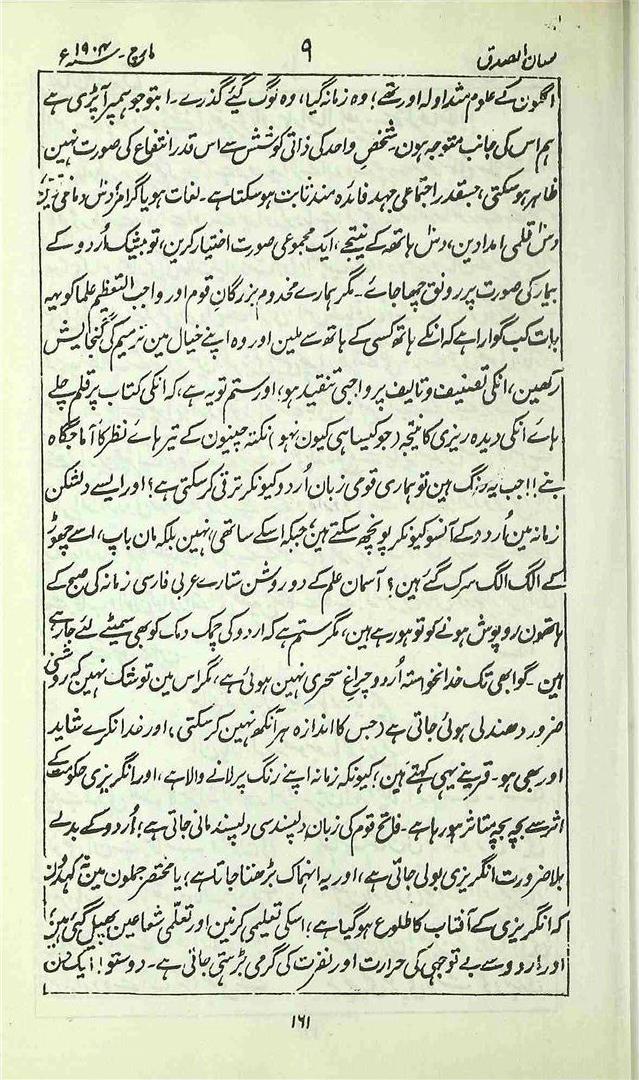 لسان الصدق ۹ مارچ سنہ ۱۹۰۴ ع
اگلون کے علوم متداولہ اور تھے؛ وہ زمانہ گیا، وہ لوگ گئے گذرے۔ ابتو جو ہمپر آپڑی ہے
ہم اس کی جانب متوجہ ہون۔ شخصِ واحد کی ذاتی کوشش سے اس قدر انتفاع کی صورت نہین
ظاہر ہوسکتی، جسقدر اجتماعی جہد فائدہ مند ثابت ہوسکتا ہے۔ لغات ہو یا گرامر دس دماغی
دس قلمی امدادین، دس ہاتھ کے نتیجے، ایک مجموعی صورت اختیار کرین، تو بیشک اُردو کے
بیمار کی صورت پر رونق چھا جائے۔ مگر ہمارے مخدوم بزرگانِ قوم اور واجب التعظیم علما کو یہ
بات کب گوارا ہے کہ انکے ہاتھ کسی کے ہاتھ سے ملین اور وہ اپنے خیال مین ترمیم کی گنجایش
رکھین، انکی تصنیف و تالیف پر واجبی تنقید ہو، اور ستم تو یہ ہے، کہ انکی کتاب پر قلم چلے
ہائے انکی دیدہ ریزی کا نتیجہ (جو کیسا ہی کیون نہو) نکتہ چینون کے تیر ہائے نظر کا آماجگاہ
بنے!! جب یہ رنگ ہین تو ہماری قومی زبان اُردو کیونکر ترقی کرسکتی ہے؟ اور ایسے دلشکن
زمانہ مین اُردو کے آنسو کیونکر پونچھ سکتے ہین؛ جبکہ اسکے ساتھی، نہین بلکہ مان باپ، اسے چھوڑ
کے الگ الگ سرک گئے ہین؟ آسمان علم کے دو روشن ستارے عربی فارسی زمانہ کی صبح کے
ہاتھون روپوش ہونے کو تو ہو رہے ہین، مگر ستم ہے کہ اردو کی چمک دمک کو بھی سمیٹے لئے جا رہے
ہین۔ گو ابھی تک خدانخواستہ اُردو چراغِ سحری نہین ہوئی ہے، مگر اس مین تو شک نہین کہ روشنی
ضرور دھندلی ہوئی جاتی ہے (جس کا اندازہ ہر آنکھ نہین کرسکتی، اور خدا نکرے شاید
اور بھی ہو۔ قرینے یہی کہتے ہین، کیونکہ زمانہ اپنے رنگ پر لانے والا ہے، اور انگریزی حکومت کے
اثر سے بچہ بچہ متاثر ہو رہا ہے۔ فاتح قوم کی زبان دلپسند سی دلپسند مانی جاتی ہے؛ اُردو کے بدلے
بلا ضرورت انگریزی بولی جاتی ہے، اور یہ انہماک بڑھتا جاتا ہے؛ یا مختصر جملون مین یہ کہدون
کہ انگریزی کے آفتاب کا طلوع ہوگیا ہے؛ اسکی تعلیمی کرنین اور تعلّمی شعاعین پھیل گئی ہین؛
اور اردو سے بے توجہی کی حرارت اور نفرت کی گرمی بڑہتی جاتی ہے۔ دوستو! ایک دن
۱۶۱